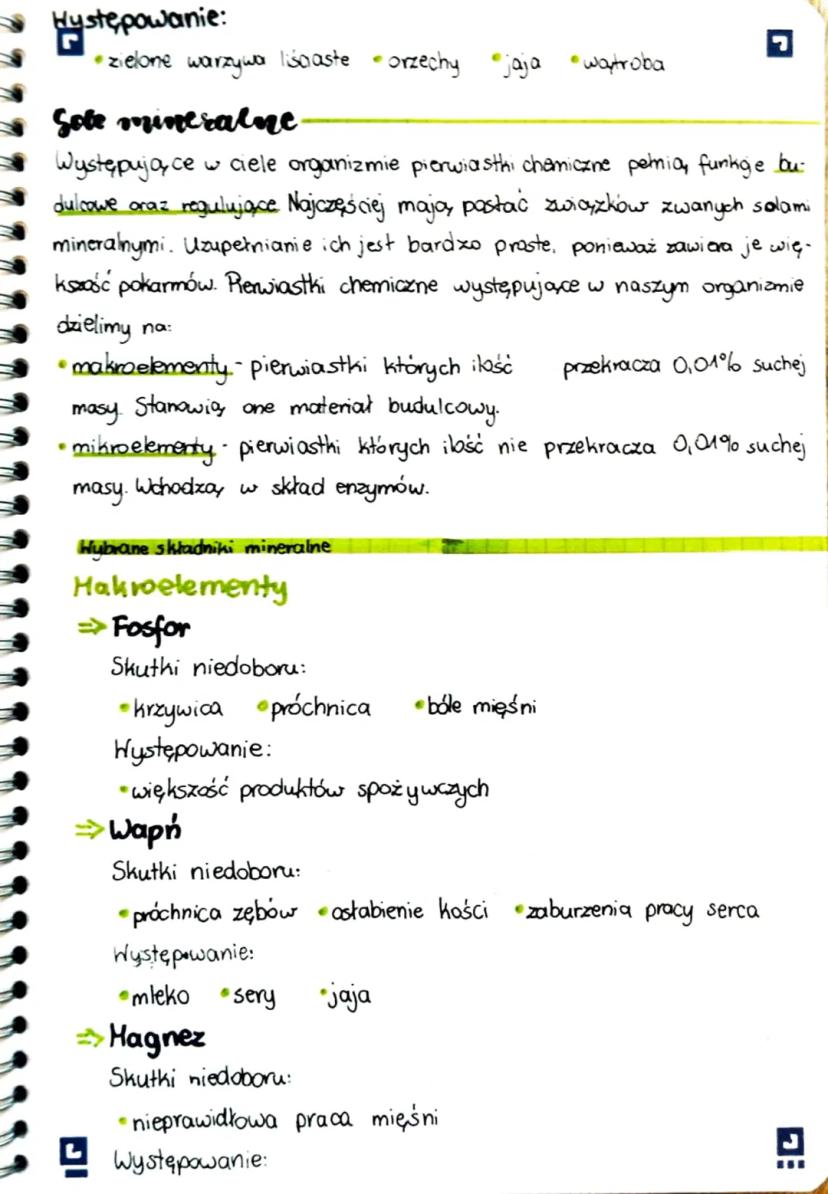 Występowanie:
• zielone warzywa liściaste • orzechy • jaja • wątroba
Sole mineralne
Występujące w ciele organizmie pierwiastki chemiczne pełnią funkcje bu-
dulcowe oraz regulujące. Najczęściej mają postać związków zwanych solami
mineralnymi. Uzupełnianie ich jest bardzo proste, ponieważ zawiera je wię-
kszość pokarmów. Pierwiastki chemiczne występujące w naszym organizmie
dzielimy na:
• makroelementy - pierwiastki których ilość przekracza 0,01% suchej
masy. Stanowią one materiał budulcowy.
• mikroelementy - pierwiastki których ilość nie przekracza 0,01% suchej
masy. Wchodzą w skład enzymów.
Wybrane składniki mineralne
Makroelementy
⇒ Fosfor
Skutki niedoboru:
• krzywica • próchnica • bóle mięśni
Występowanie:
• większość produktów spożywczych
⇒ Wapń
Skutki niedoboru:
• próchnica zębów • osłabienie kości • zaburzenia pracy serca
Występowanie:
• mleko • sery • jaja
⇒ Magnez
Skutki niedoboru:
• nieprawidłowa praca mięśni
Występowanie: